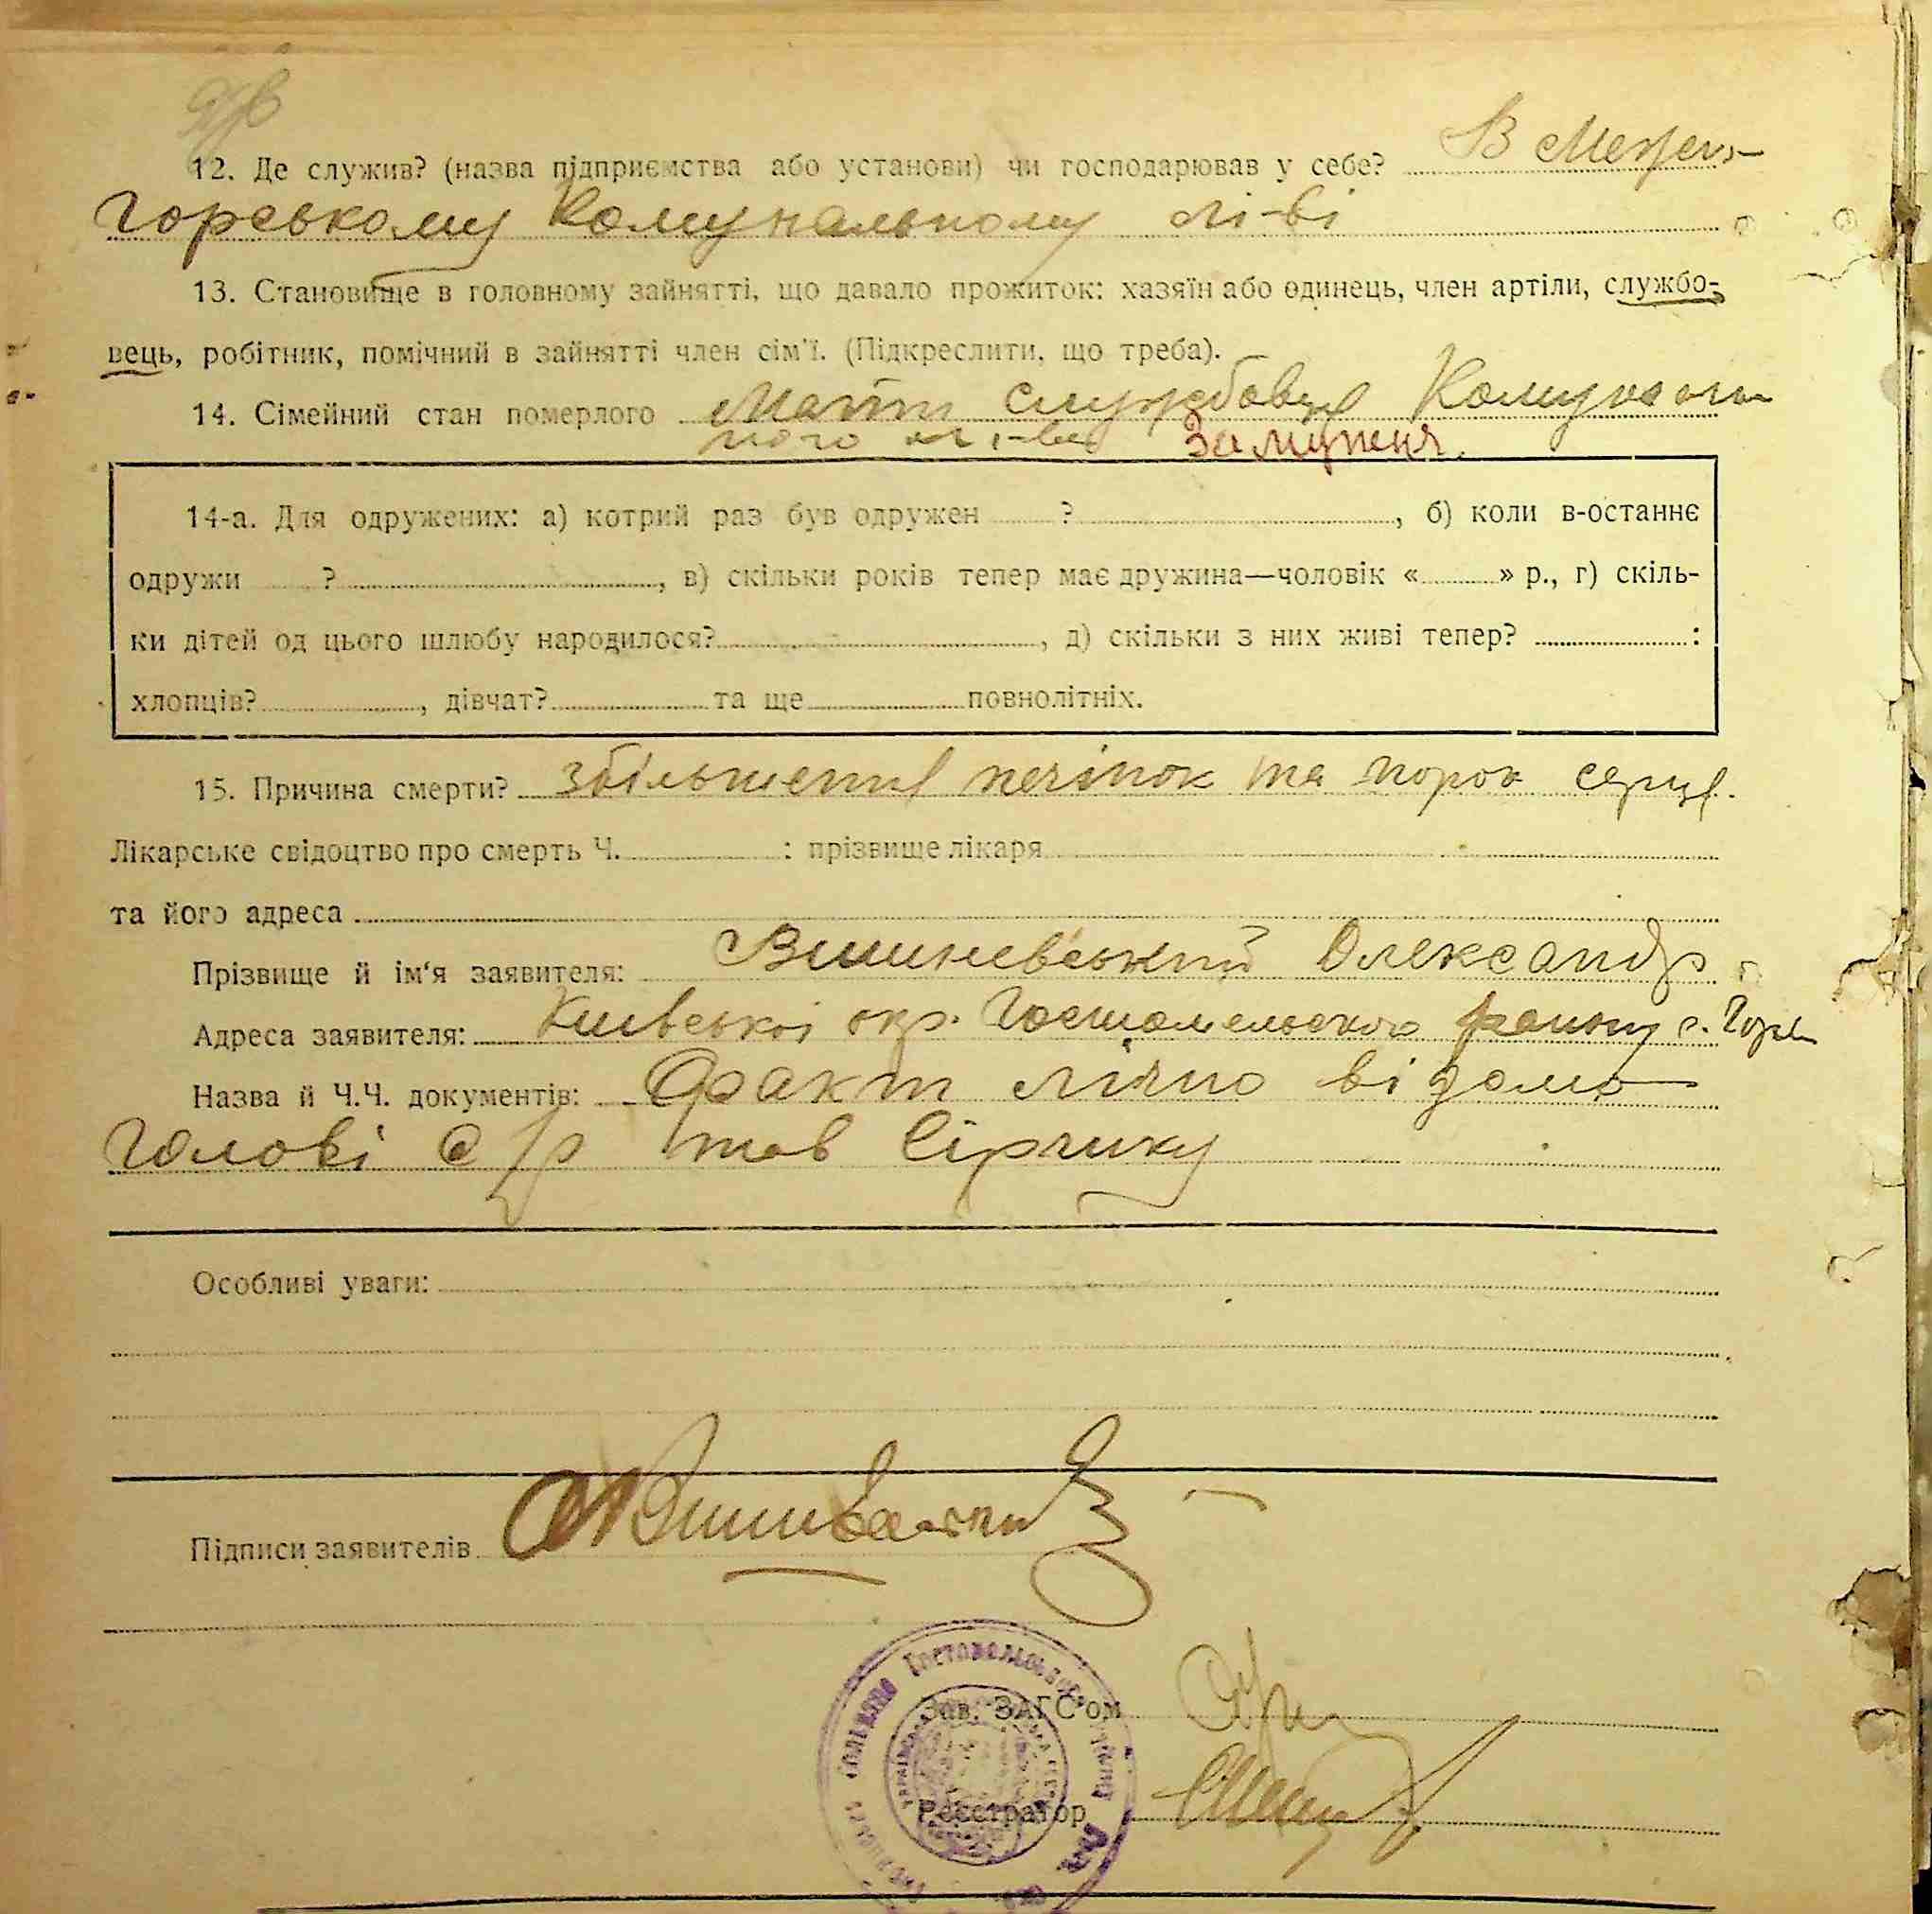 12. Де служив? (назва підприємства або установи) чи господарював у себе? В Межи-
горському Комунальному лі-ві
13. Становище в головному зайнятті, що давало прожиток: хазяїн або одинець, член артіли, службо-
вець, робітник, помічний в зайнятті член сім'ї. (Підкреслити, що треба).
14. Сімейний стан померлого Мати службовця Комуналь
ного лі-ва Замужня.
14-а. Для одружених: а) котрий раз був одружен ?, б) коли в-останнє
одружи ?, в) скільки років тепер має дружина—чоловік « » р., г) скіль-
ки дітей од цього шлюбу народилося?, д) скільки з них живі тепер? :
хлопців?, дівчат? та ще повнолітніх.
15. Причина смерти? збільшення печінок та порок серця.
Лікарське свідоцтво про смерть Ч. : прізвище лікаря
та його адреса
Прізвище й ім'я заявителя: Вишневський Олександр
Адреса заявителя: Київської окр. Гостомельського району с.
Назва й Ч.Ч. документів: Факт лічно відомо
голові с/р тов Сірчику
Особливі уваги:
Підписи заявителів
Зав. ЗАГС'ом
Реєстратор